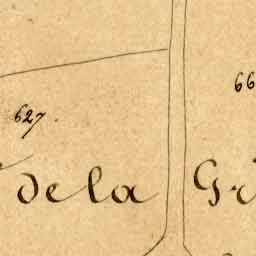 627.
66
de la Gr